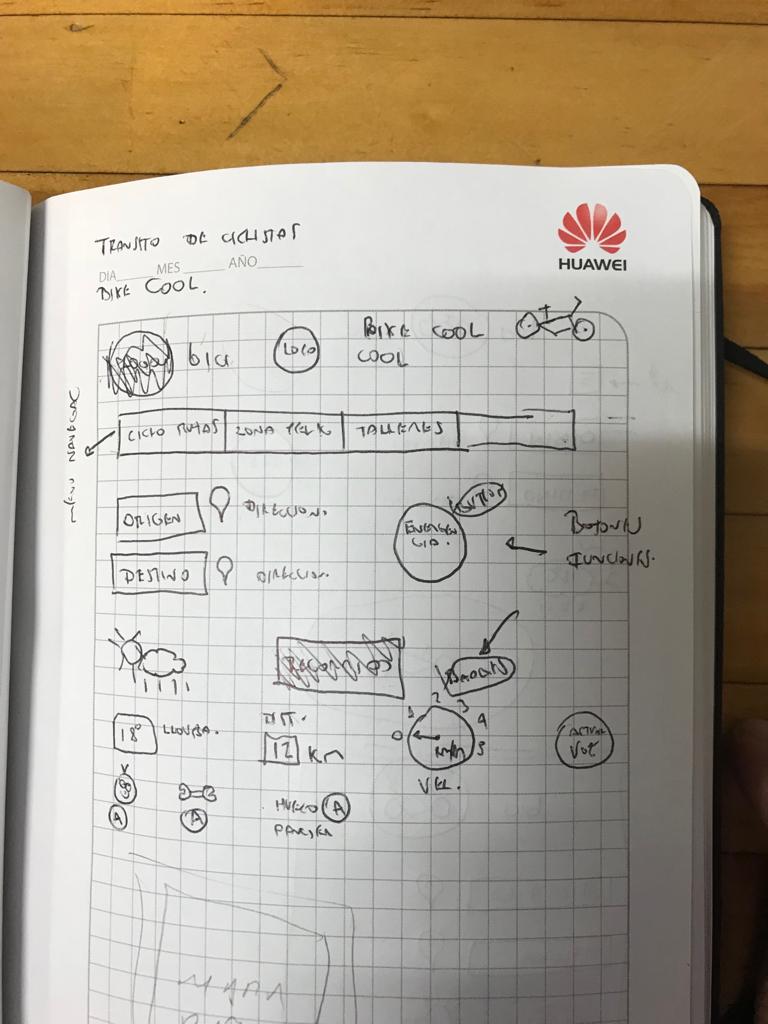 TRANSITO DE CICLISTAS
HUAWEI
DIA MES AÑO
BIKE COOL.
bici
LOGO
BIKE COOL
COOL
MENU NAVEGAC
CICLO RUTAS ZONA TALLERES
ORIGEN DIRECCION.
DESTINO DIRECCION.
EMERGEN
CIA.
BOTONES
FUNCIONES.
18° LLUVIA.
DIST.
12 Km
0 1 2 3 4 5
VEL.
ACTIVAR
VOZ
A A
HUECO A
MAPA